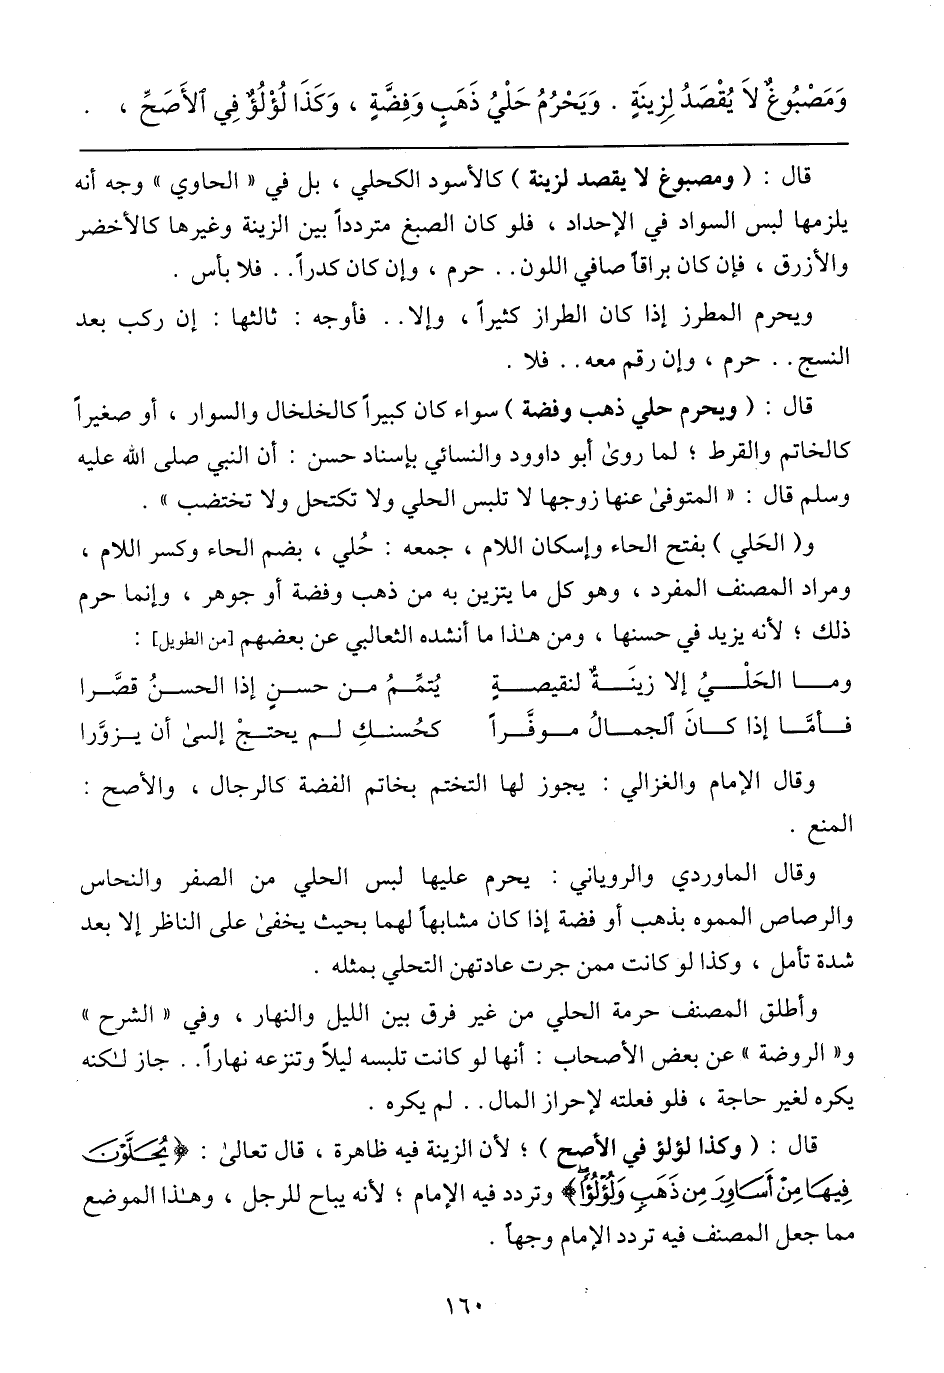 وَمَصْبُوغٌ لاَ يُقْصَدُ لِزِينَةٍ . وَيَحْرُمُ حَلْيُ ذَهَبٍ وَفِضَّةٍ ، وَكَذَا لُؤْلُؤٌ فِي ٱلأَصَحِّ ، .
قال : ( ومصبوغ لا يقصد لزينة ) كالأسود الكحلي ، بل في « الحاوي » وجه أنه
يلزمها لبس السواد في الإحداد ، فلو كان الصبغ متردداً بين الزينة وغيرها كالأخضر
والأزرق ، فإن كان براقاً صافي اللون.. حرم ، وإن كان كدراً.. فلا بأس .
ويحرم المطرز إذا كان الطراز كثيراً ، وإلا.. فأوجه : ثالثها : إن ركب بعد
النسج.. حرم ، وإن رقم معه.. فلا .
قال : ( ويحرم حلي ذهب وفضة ) سواء كان كبيراً كالخلخال والسوار ، أو صغيراً
كالخاتم والقرط ؛ لما روىٰ أبو داوود والنسائي بإسناد حسن : أن النبي صلى الله عليه
وسلم قال : « المتوفىٰ عنها زوجها لا تلبس الحلي ولا تكتحل ولا تختضب » .
و( الحَلي ) بفتح الحاء وإسكان اللام ، جمعه : حُلي ، بضم الحاء وكسر اللام ،
ومراد المصنف المفرد ، وهو كل ما يتزين به من ذهب وفضة أو جوهر ، وإنما حرم
ذلك ؛ لأنه يزيد في حسنها ، ومن هـٰذا ما أنشده الثعالبي عن بعضهم [من الطويل] :
ومـــا الحَلْـــيُ إلا زينَـــةٌ لنقيصـــةٍ يُتمِّـــمُ مـــن حســـنٍ إذا الحســـنُ قصَّـــرا
فـــأمَّـــا إذا كـــانَ ٱلجمـــالُ مـــوفَّـــراً كحُســـنـــكِ لـــم يحتـــجْ إلـــىٰ أن يـــزوَّرا
وقال الإمام والغزالي : يجوز لها التختم بخاتم الفضة كالرجال ، والأصح :
المنع .
وقال الماوردي والروياني : يحرم عليها لبس الحلي من الصفر والنحاس
والرصاص المموه بذهب أو فضة إذا كان مشابهاً لهما بحيث يخفىٰ على الناظر إلا بعد
شدة تأمل ، وكذا لو كانت ممن جرت عادتهن التحلي بمثله .
وأطلق المصنف حرمة الحلي من غير فرق بين الليل والنهار ، وفي « الشرح »
و« الروضة » عن بعض الأصحاب : أنها لو كانت تلبسه ليلاً وتنزعه نهاراً.. جاز لـٰكنه
يكره لغير حاجة ، فلو فعلته لإحراز المال.. لم يكره .
قال : ( وكذا لؤلؤ في الأصح ) ؛ لأن الزينة فيه ظاهرة ، قال تعالىٰ : ﴿يُحَلَّوْنَ
فِيهَا مِنْ أَسَاوِرَ مِن ذَهَبٍ وَلُؤْلُؤًا﴾ وتردد فيه الإمام ؛ لأنه يباح للرجل ، وهـٰذا الموضع
مما جعل المصنف فيه تردد الإمام وجهاً .
١٦٠